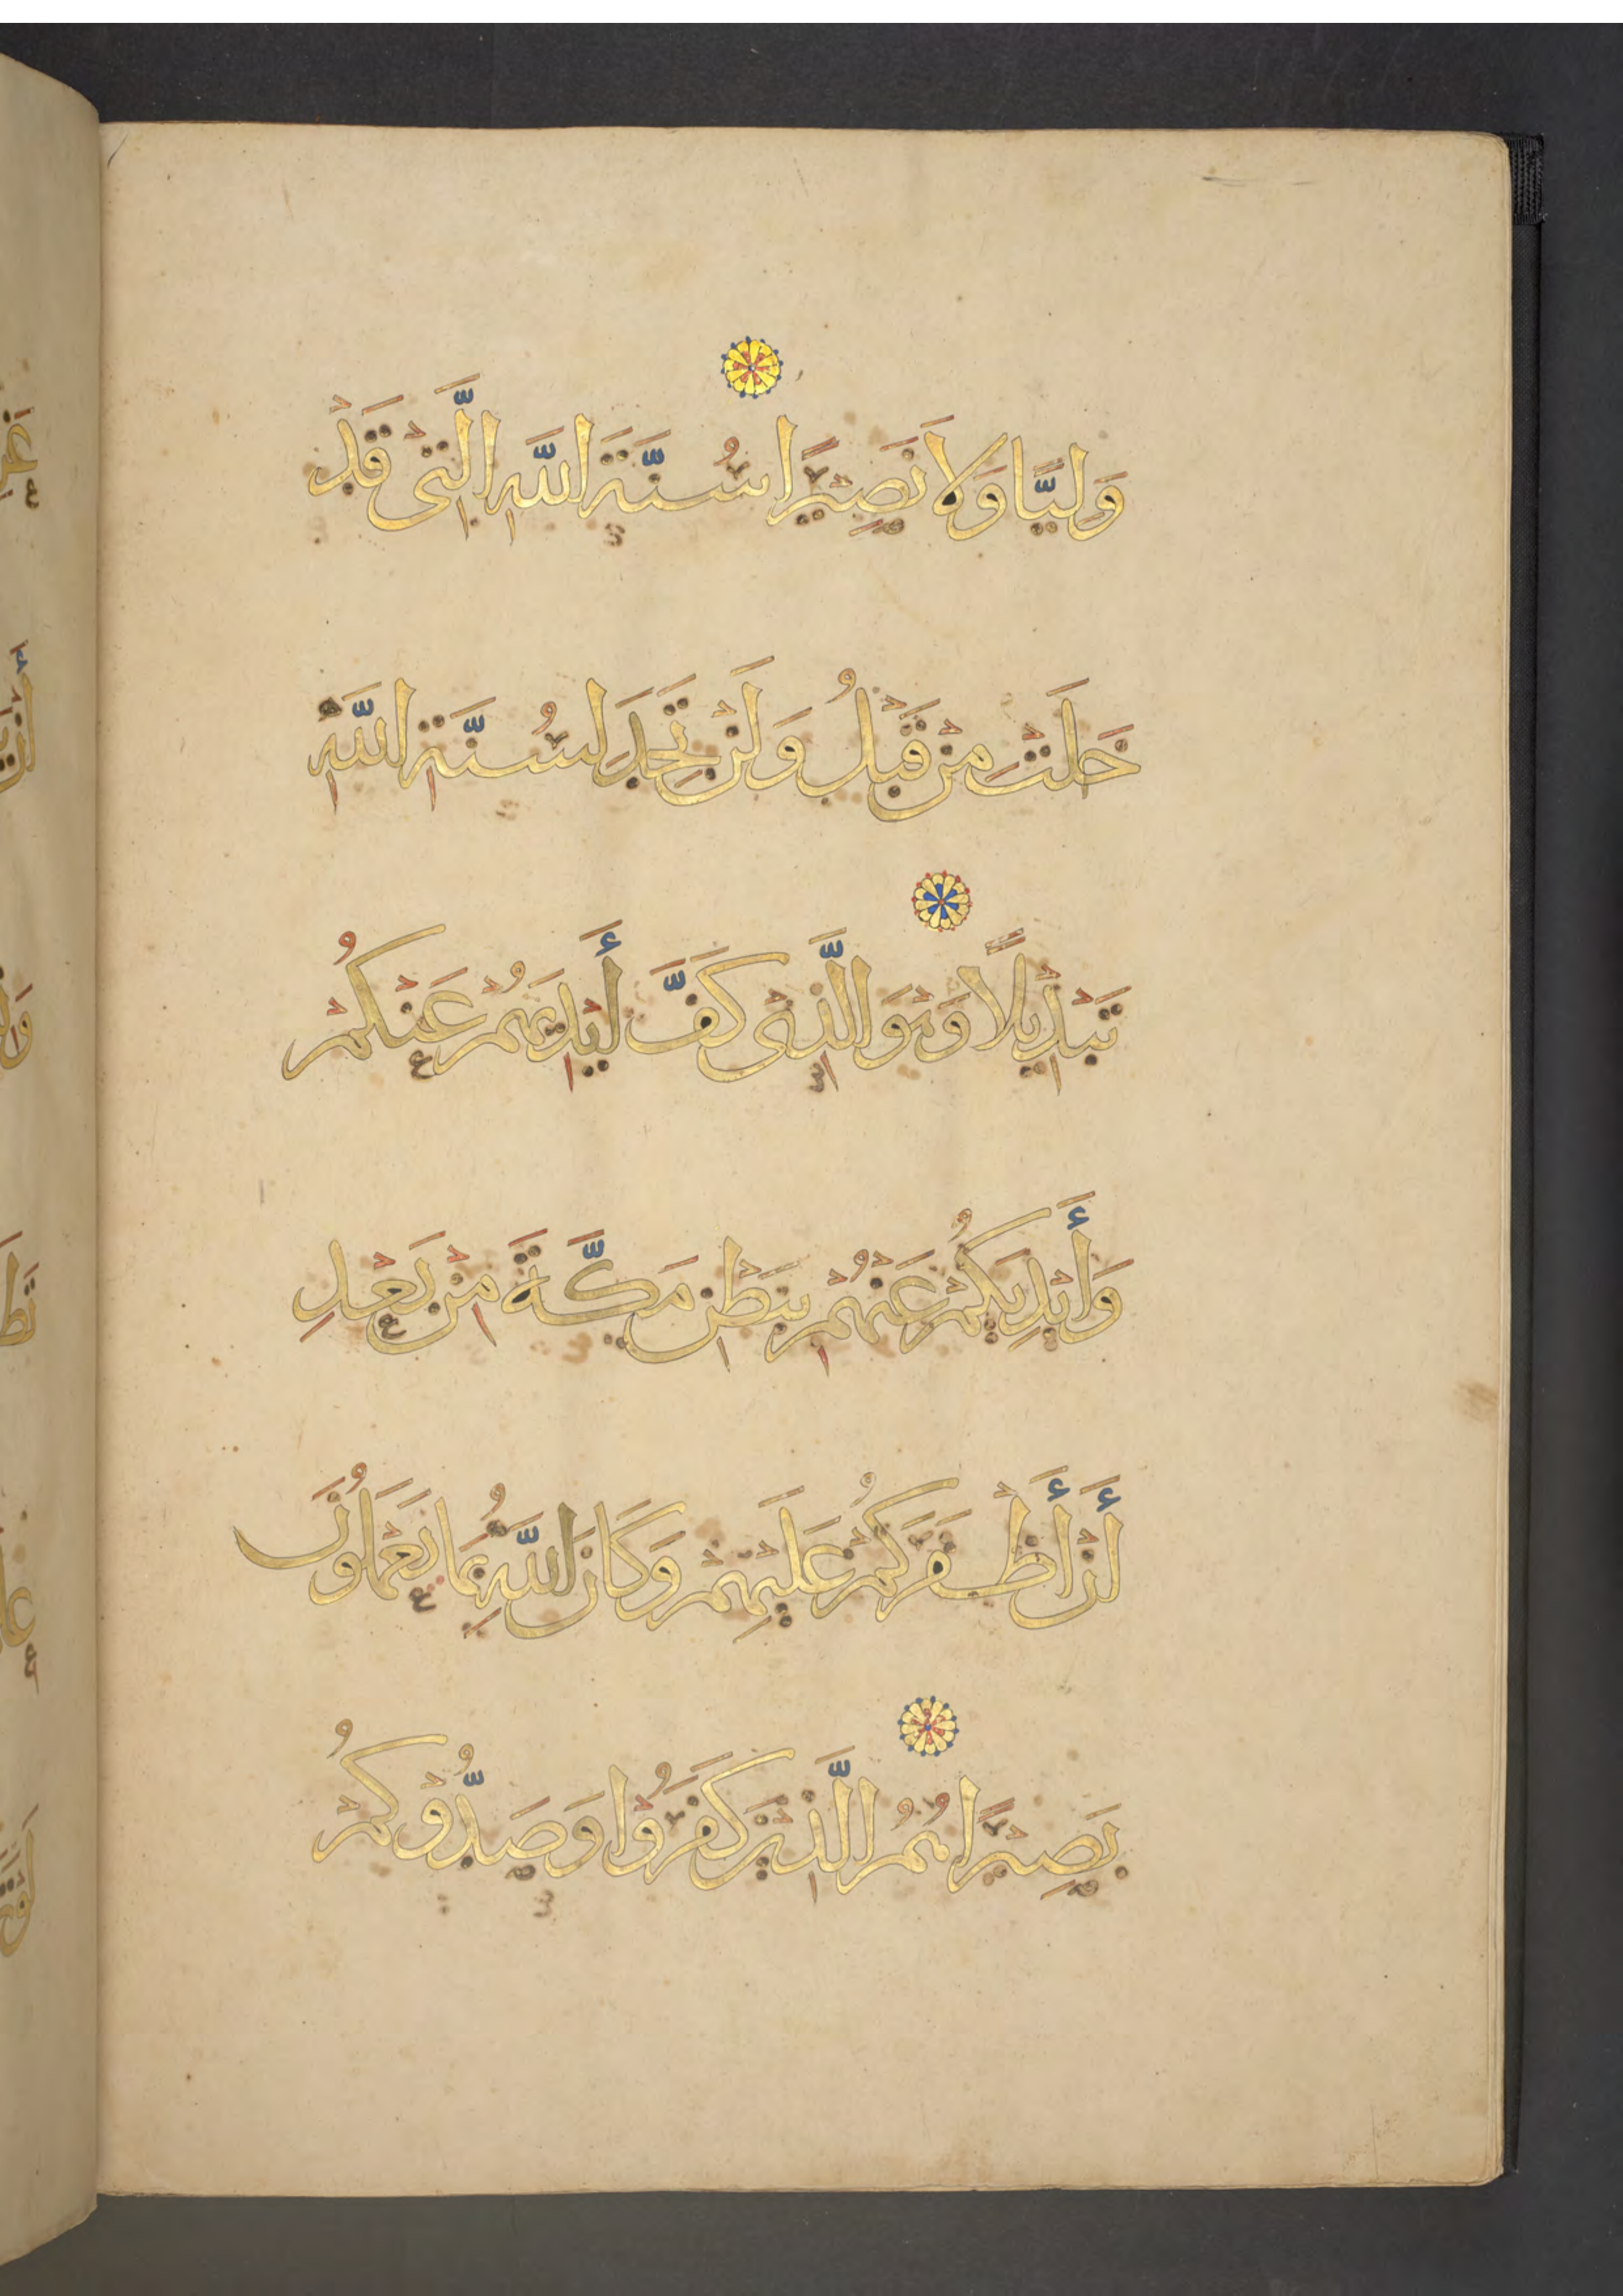 وَلِيًّا وَلَا نَصِيْرًا سُنَّةَ اللَّهِ الَّتِيْ قَدْ
خَلَتْ مِنْ قَبْلُ وَلَنْ تَجِدَ لِسُنَّةِ اللَّهِ
تَبْدِيْلًا وَهُوَ الَّذِيْ كَفَّ أَيْدِيَهُمْ عَنْكُمْ
وَأَيْدِيَكُمْ عَنْهُمْ بِبَطْنِ مَكَّةَ مِنْ بَعْدِ
أَنْ أَظْفَرَكُمْ عَلَيْهِمْ وَكَانَ اللَّهُ بِمَا تَعْمَلُونَ
بَصِيْرًا هُمُ الَّذِيْنَ كَفَرُوْا وَصَدُّوْكُمْ